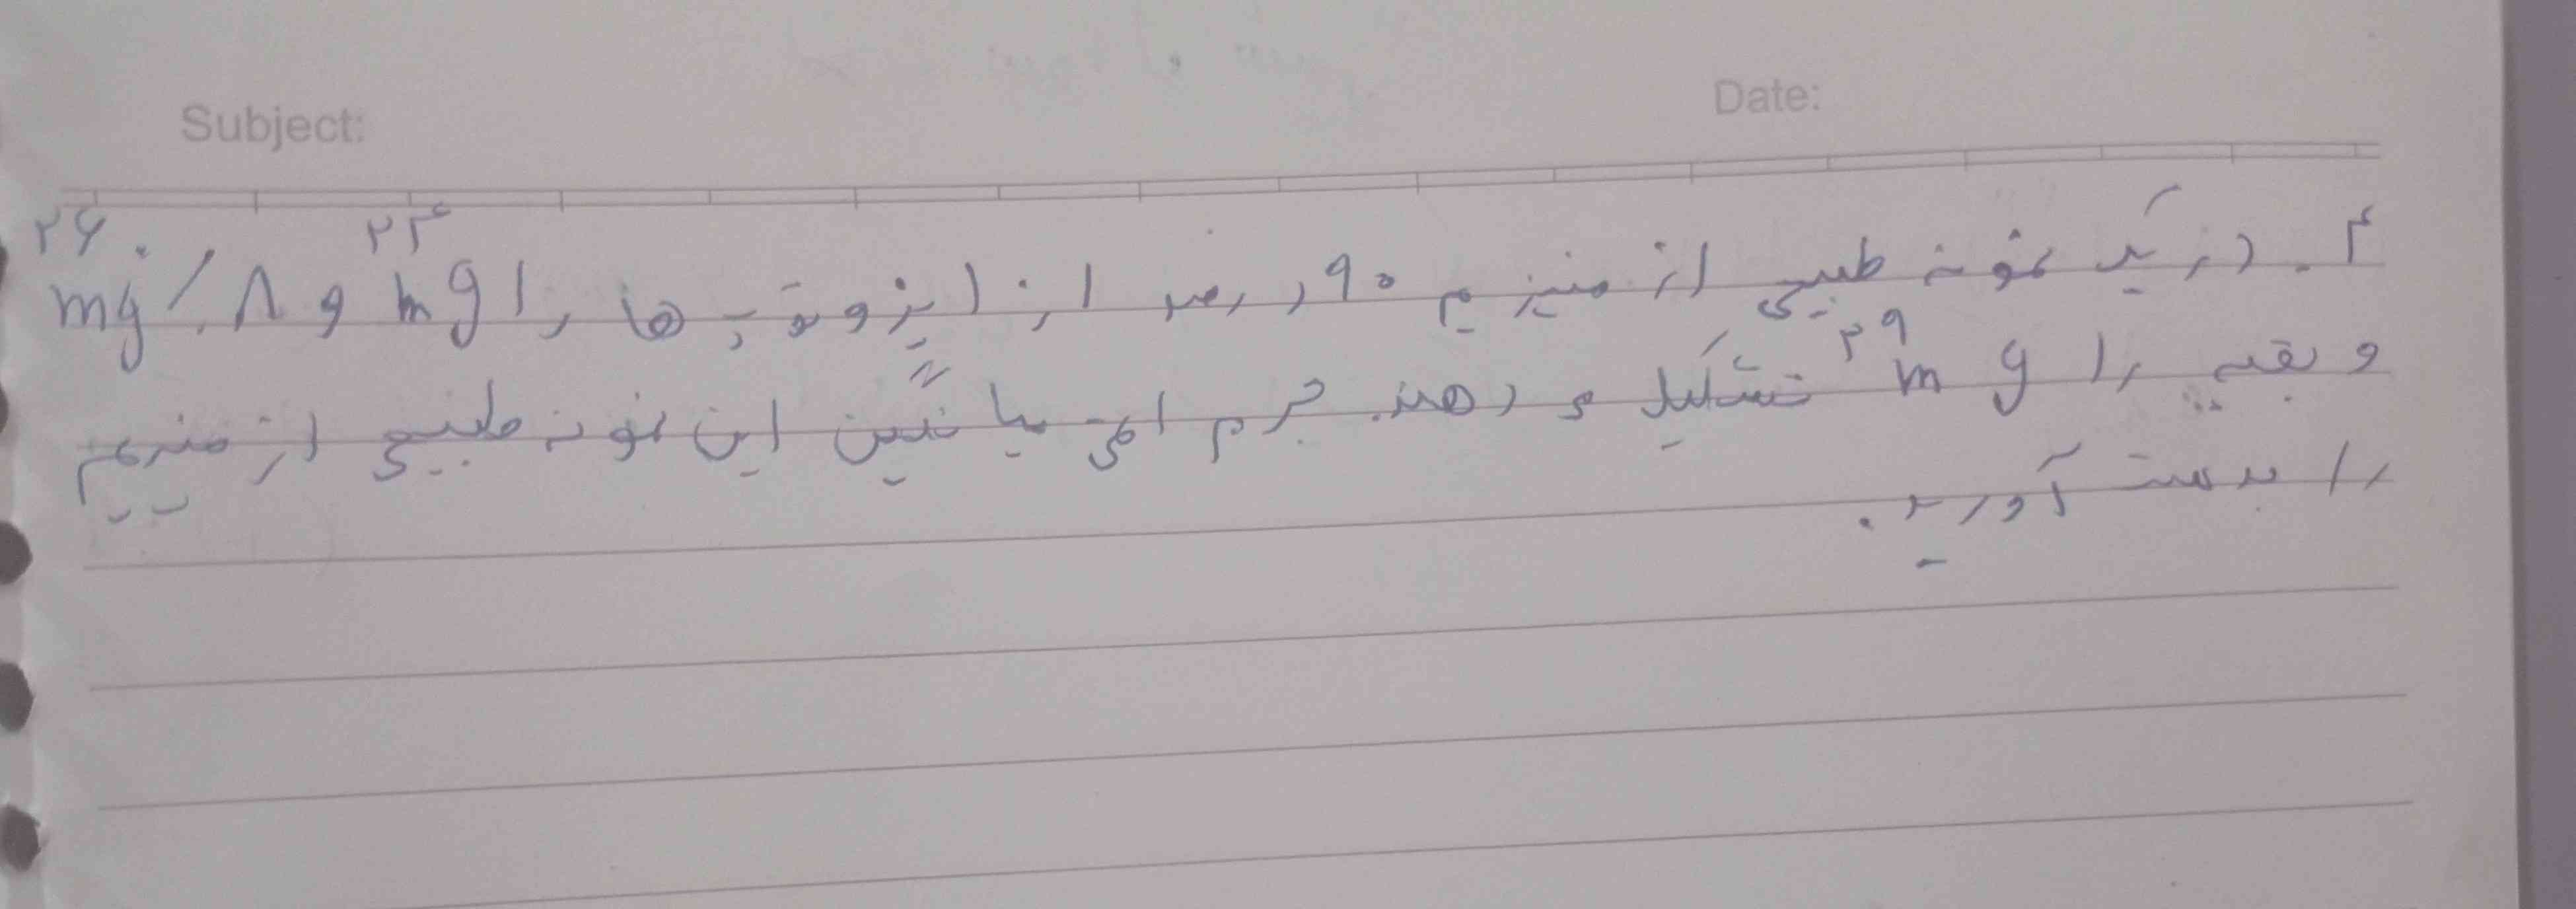 Subject: Date:
۴. در یک نمونه طبیعی از منیزیم ۹۰ درصد از ایزوتوپ ها را mg۲۴ و ۸٪ mg۲۶
و بقیه را mg۲۹ تشکیل می دهند. جرم اتمی میانگین این نمونه طبیعی از منیزیم
را بدست آورید.